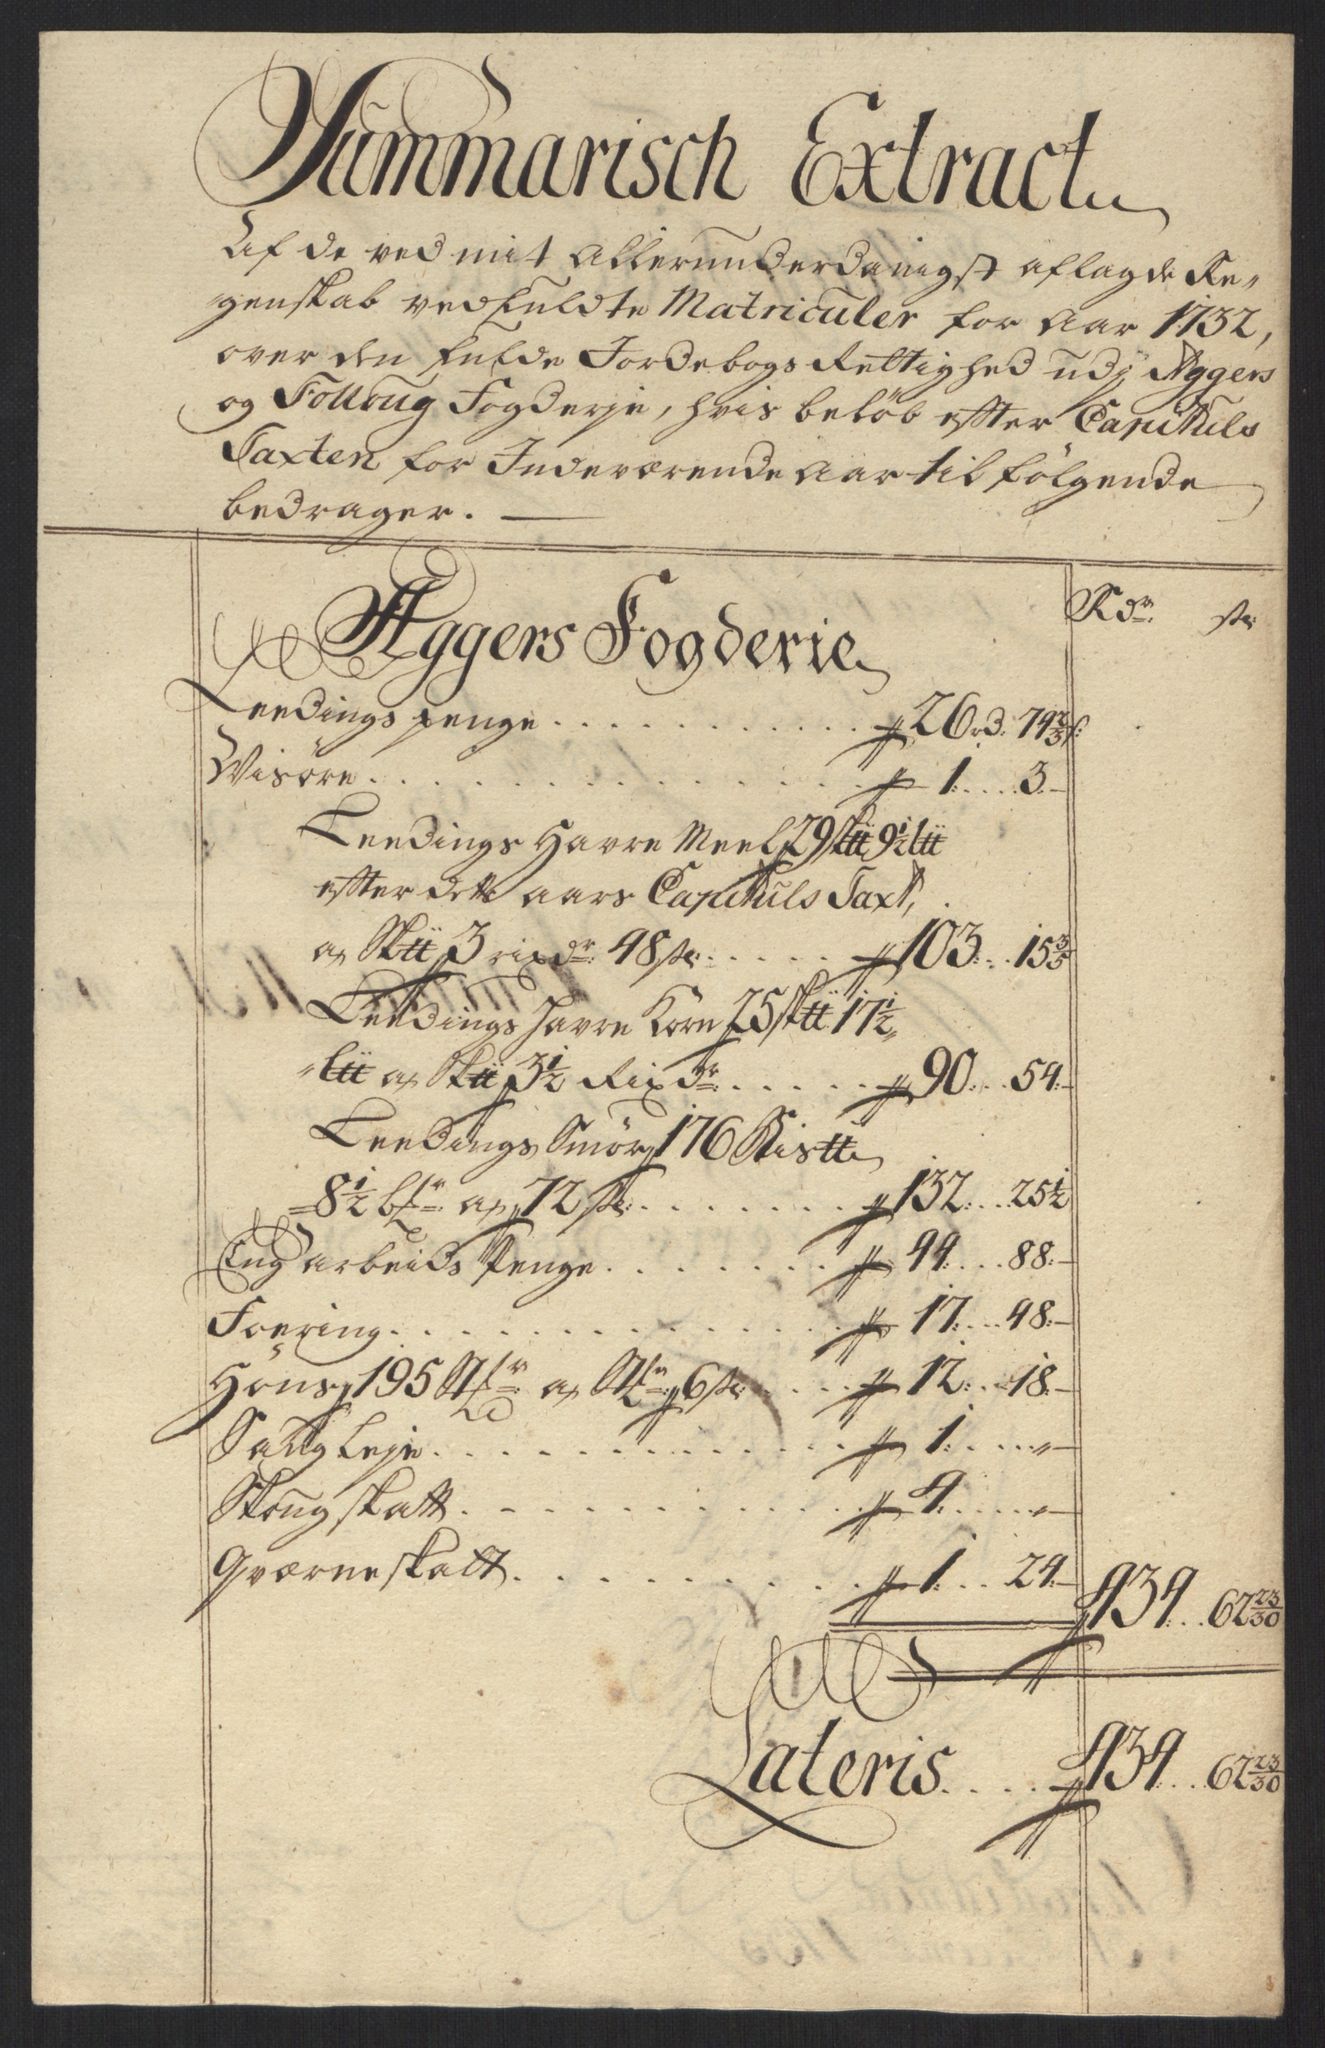 Summarisch Extract
Af de ved mit Allerunderdanigst aflagde Re-
genskab vedhuldte Matriculer for Aar 1732,
over den fulde Jordebogs Rettighed udj Aggers
og Folloug Fogderje, hvis beløb efter Capituls
Taxten for Indeværende Aar til følgende
bedrager.
Rdr ß
Aggers Fogderie
Leedings penge . . . 26 rd. 74 2/3 ß
Wisøre . . . 1 : 3 :
Leedings Havre Meel 29 Sk℔ 9 1/2 l℔
efter dette aars Capituls Taxt,
a Sk℔ 3 rixdr 48 ß . . . 103 : 15 3/5
Leedings Havre Korn 25 Sk℔ 17 1/2
l℔ a Sk℔ 3 1/2 Rixdr . . . 90 : 54 :
Leedings Smør 176 Kister
8 1/2 a 72 ß . . . 132 : 25 1/2
Eng arbeids Penge . . . 44 : 88 :
Foering . . . 17 : 48 :
Høns 195 Stkr a Stk 6 ß . . . 12 : 18 :
Saugleje . . . 1 : "
Skougskatt . . . 4 : "
Qværneskatt . . . 1 : 24 :
434 : 62 23/30
Lateris . . . 434 : 62 23/30